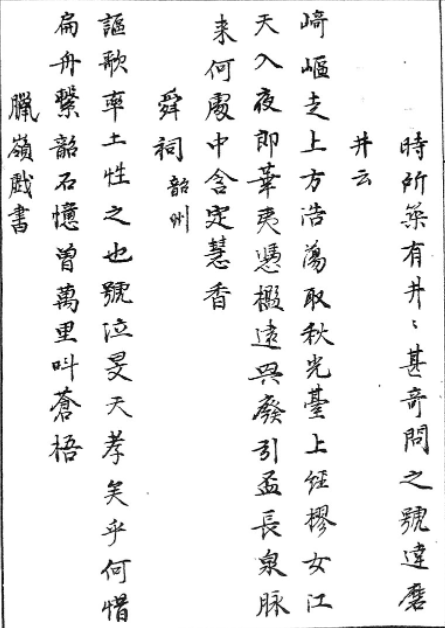 時所築有井〻甚奇問之號達磨
井云
﨑嶇走上方浩蕩取秋光臺上經樛女江
天入夜郎華夷憑檻遠興廢引盃長泉脉
来何處中含定慧香
舜祠韶州
謳歌率土性之也號泣旻天孝矣乎何惜
扁舟繫韶石憶曾萬里叫蒼梧
臘嶺戲書